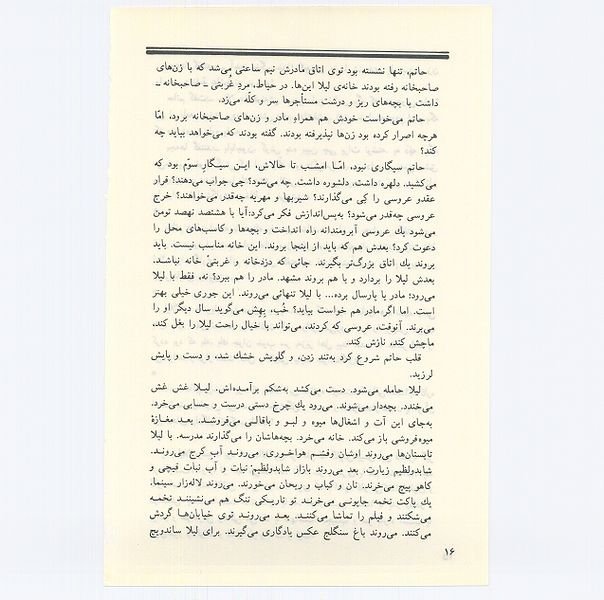 حاتم، تنها نشسته بود توی اتاق مادرش نیم ساعتی می‌شد که با زن‌های
صاحبخانه رفته بودند خانه‌ی لیلا این‌ها. در حیاط، مردِ غُربتی ـ صاحبخانه ـ
داشت با بچه‌های ریز و درشت مستأجرها سر و کلّه می‌زد.
حاتم می‌خواست خودش هم همراهِ مادر و زن‌های صاحبخانه برود، امّا
هرچه اصرار کرده بود زن‌ها نپذیرفته بودند. گفته بودند که می‌خواهد بیاید چه
کند؟
حاتم سیگاری نبود، امّا امشب تا حالاش، این سیگارِ سوّم بود که
می‌کشید. دلهره داشت. دلشوره داشت. چه می‌شود؟ چی جواب می‌دهند؟ قرار
عقدو عروسی را کِی می‌گذارند؟ شیربها و مهریه چه‌قدر می‌خواهند؟ خرج
عروسی چه‌قدر می‌شود؟ به‌پس‌اندازش فکر می‌کرد: آیا با هشتصد نهصد تومن
می‌شود یك عروسی آبرومندانه راه انداخت و بچه‌ها و کاسب‌های محل را
دعوت کرد؟ بعدش هم که باید از اینجا بروند. این خانه مناسب نیست. باید
بروند یك اتاق بزرگ‌تر بگیرند. جائی که دزدخانه و غربتی خانه نباشد.
بعدش لیلا را بردارد و با هم بروند مشهد. مادر را هم ببرد؟ نه، فقط با لیلا
می‌رود؛ مادر با پارسال برده... با لیلا تنهائی می‌روند. این جوری خیلی بهتر
است. اما اگر مادر هم خواست بیاید؟ خُب، بِهِش می‌گوید سال دیگر او را
می‌برند. آنوقت، عروسی که کردند، می‌تواند با خیال راحت لیلا را بغل کند،
ماچش کند، نازش کند.
قلب حاتم شروع کرد به‌تند زدن، و گلویش خشك شد، و دست و پایش
لرزید.
لیلا حامله می‌شود. دست می‌کشد به‌شکم برآمده‌اش. لیلا غش غش
می‌خندد. بچه‌دار می‌شوند. می‌رود یك چرخ دستی درست و حسابی می‌خرد.
به‌جای این آت و اشغال‌ها میوه و لبو و باقالی می‌فروشد. بعد مغازهٔ
میوه‌فروشی باز می‌کند. خانه می‌خرد. بچه‌هاشان را می‌گذارند مدرسه. با لیلا
تابستان‌ها می‌روند اوشان وفشم هواخوری. می‌روند آبِ کرج می‌روند.
شابدولظیم زیارت. بعد می‌روند بازار شابدولظیم نبات و آب نبات قیچی و
کاهو پیچ می‌خرند. نان و کباب و ریحان می‌خورند. می‌روند لاله‌زار سینما.
یك پاکت تخمه جابونی می‌خرند تو تاریکی تنگ هم می‌نشینند تخمه
می‌شکنند و فیلم را تماشا می‌کنند. بعد می‌روند توی خیابان‌ها گردش
می‌کنند. می‌روند باغ سنگلج عکس یادگاری می‌گیرند. برای لیلا ساندویچ
۱۶